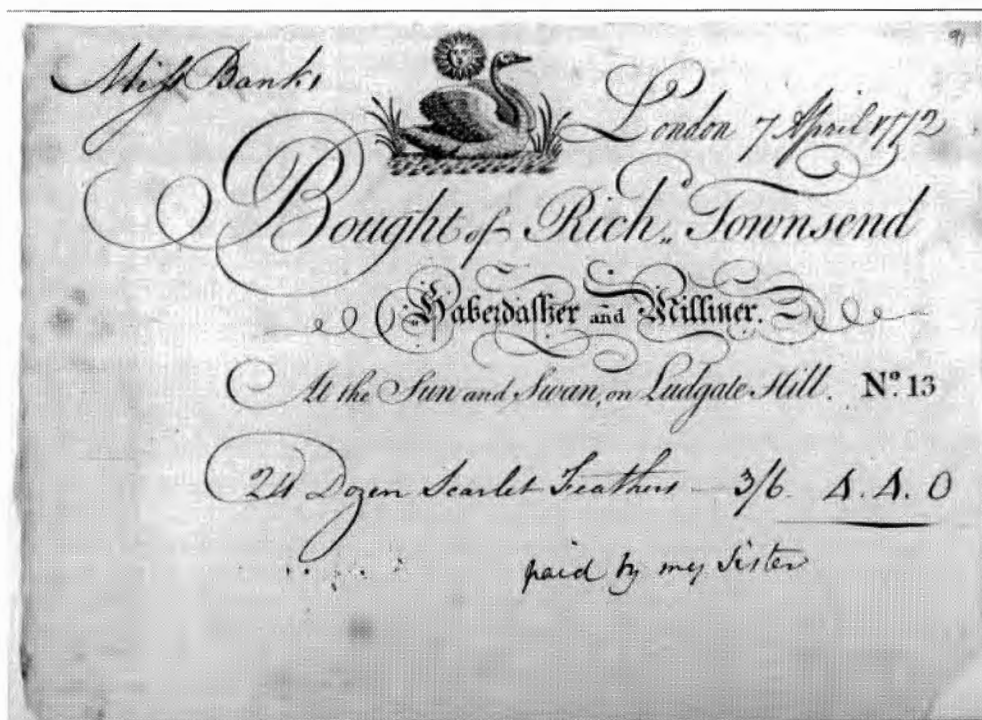 91
Miss Banks
London 7 April 1772
Bought of Rich.d Townsend
Haberdasher and Milliner.
At the Sun and Swan, on Ludgate Hill. No. 13
24 Dozen Scarlet Feathers — 3/6. 4. 4. 0
paid by my Sister